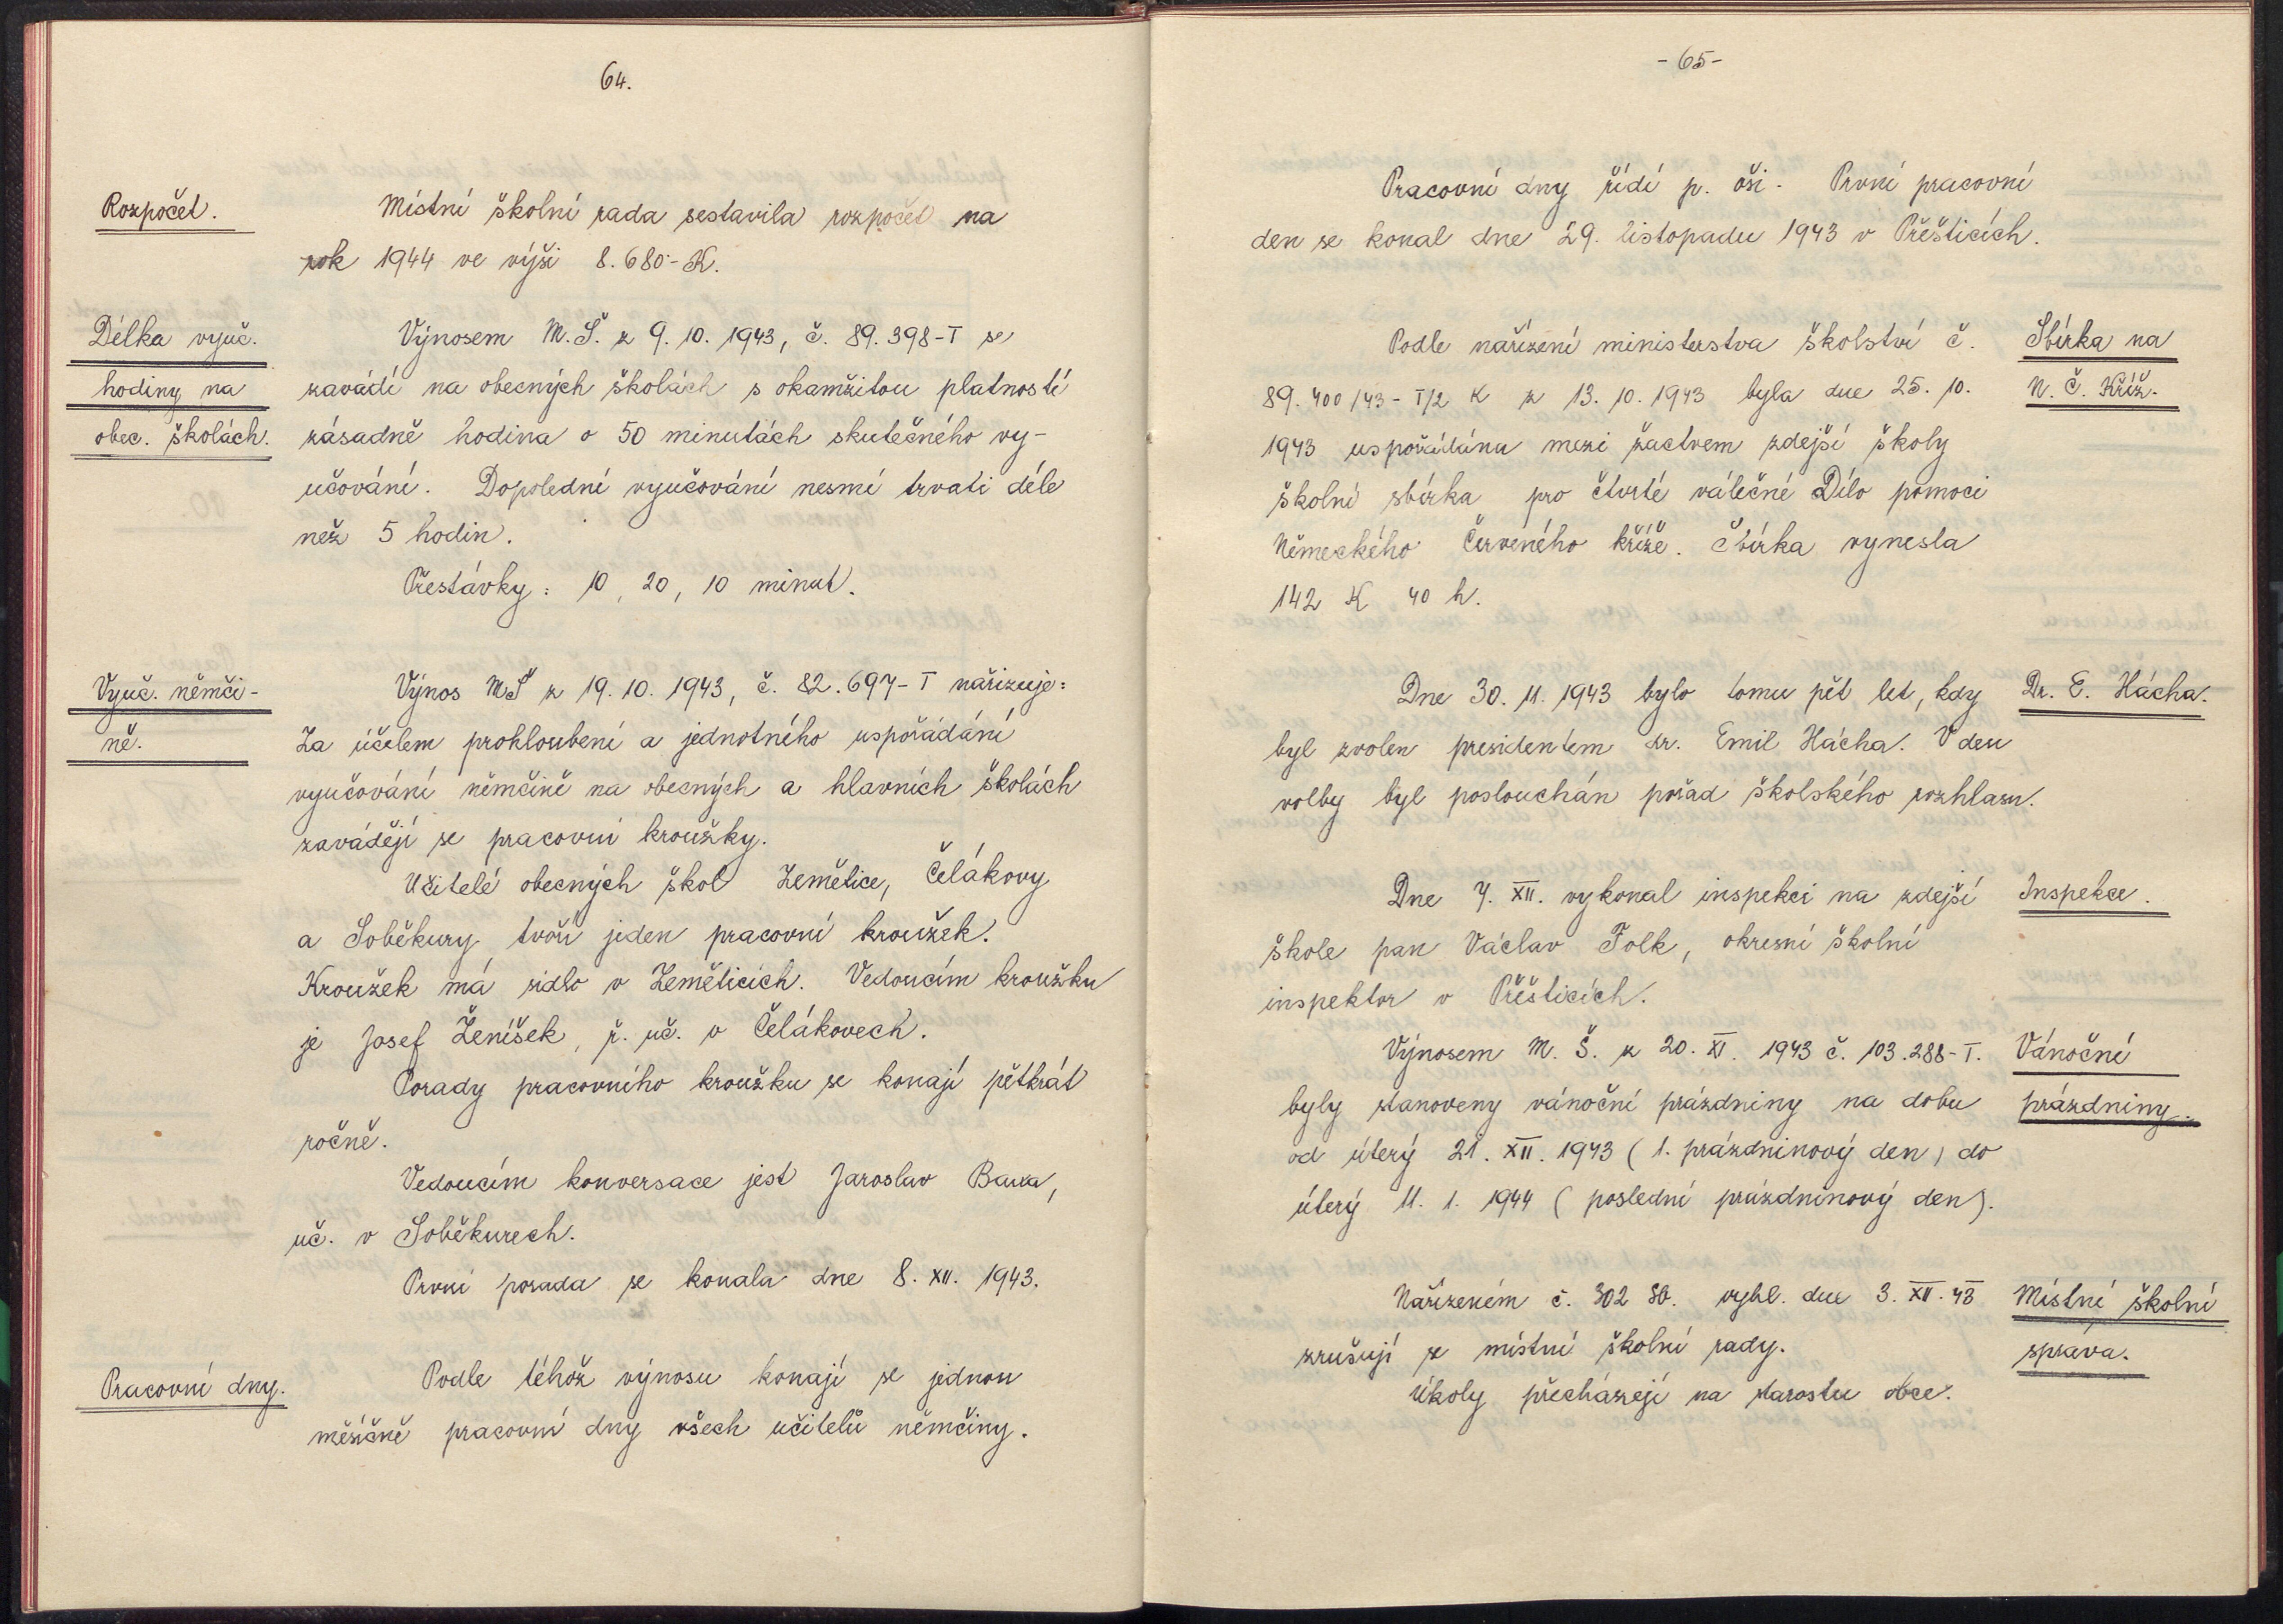 64.
Rozpočet.
Místní školní rada sestavila rozpočet na
rok 1944 ve výši 8.680·- K.
Délka vyuč.
hodiny na
obec. školách.
Výnosem M. Š. z 9. 10. 1943, č. 89.398-I se
zavádí na obecných školách s okamžitou platností
zásadně hodina o 50 minutách skutečného vy-
učování. Dopolední vyučování nesmí trvati déle
než 5 hodin.
Přestávky: 10, 20, 10 minut.
Vyuč. němči-
ně.
Výnos MŠ z 19. 10. 1943, č. 82.697-I nařizuje:
Za účelem prohloubení a jednotného uspořádání
vyučování němčině na obecných a hlavních školách
zavádějí se pracovní kroužky.
Učitelé obecných škol Zemětice, Čelákovy
a Soběkury tvoří jeden pracovní kroužek.
Kroužek má sídlo v Zeměticích. Vedoucím kroužku
je Josef Ženíšek, ř. uč. v Čelákovech.
Porady pracovního kroužku se konají pětkrát
ročně.
Vedoucím konversace jest Jaroslav
uč. v Soběkurech.
První porada se konala dne 8. XII. 1943.
Pracovní dny.
Podle téhož výnosu konají se jednou
měsíčně pracovní dny všech učitelů němčiny.
- 65 -
Pracovní dny řídí p. oši. První pracovní
den se konal dne 29. listopadu 1943 v Přešticích.
Sbírka na
N. Č. Kříž.
Podle nařízení ministerstva školství č.
89.400/43 - I/2 K z 13. 10. 1943 byla dne 25. 10.
1943 uspořádána mezi žactvem zdejší školy
školní sbírka pro čtvrté válečné Dílo pomoci
Německého Červeného kříže. Sbírka vynesla
142 K 40 h.
Dr. E. Hácha.
Dne 30. 11. 1943 bylo tomu pět let, kdy
byl zvolen presidentem dr. Emil Hácha. V den
volby byl poslouchán pořad školského rozhlasu.
Inspekce.
Dne 7. XII. vykonal inspekci na zdejší
škole pan Václav Folk, okresní školní
inspektor v Přešticích.
Vánoční
prázdniny.
Výnosem M. Š. z 20. XI. 1943 č. 103.288-I.
byly stanoveny vánoční prázdniny na dobu
od úterý 21. XII. 1943 (1. prázdninový den) do
úterý 11. 1. 1944 (poslední prázdninový den).
Místní školní
správa.
Nařízením č. 302 Sb. vyhl. dne 3. XII. 43
zrušují se místní školní rady.
Úkoly přecházejí na starostu obce.